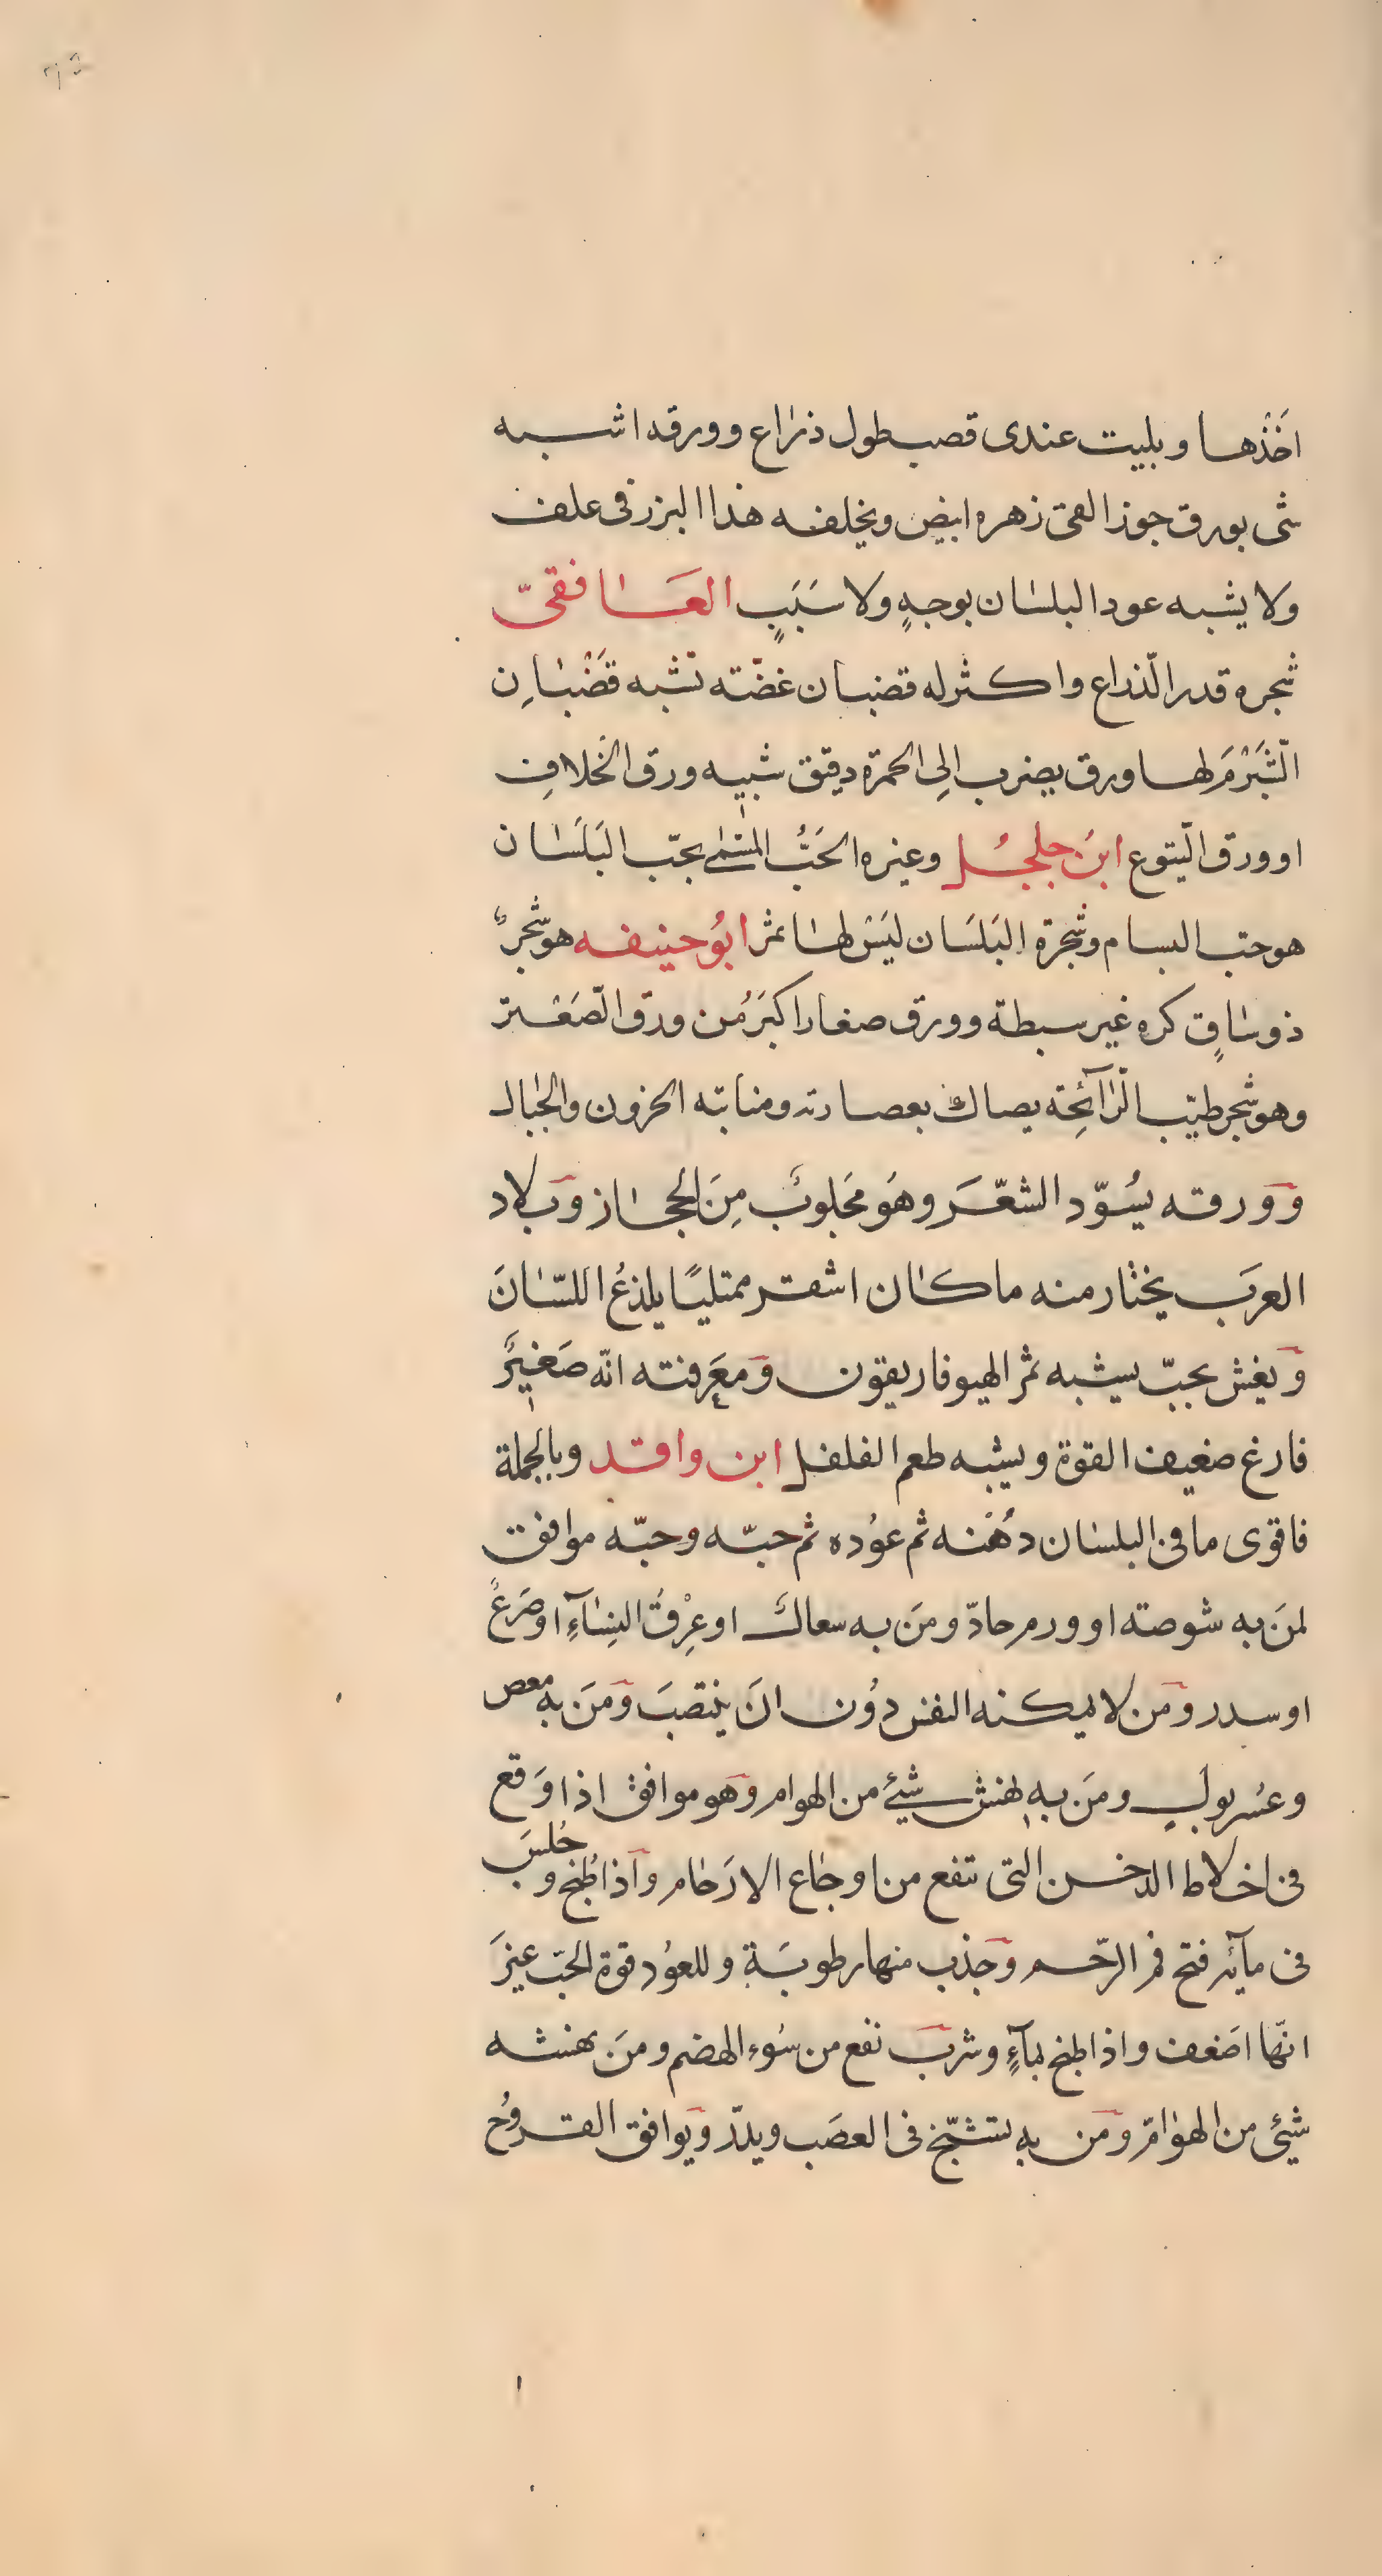 اخَذْها وبليت عندى قصب طول ذراع وورقه اشبه
شى بورق جوز القى زهره ابيض ويخلفه هذا البزر فى علف
ولا يشبه عود البلسان بوجهٍ ولا سَبَبٍ العَافقىّ
شجره قدر الذّراع واكثر له قضبان غضّته تشبه قَضْبَانِ
الشّبَرْمَ لها ورق يضرب الِى الحمرة دقيق شبيه ورق الخَلافِ
او ورق اليّتوع ابنُ جلجُل وغيره الحَبُّ المسّمٰى بحبّ البَلَسَان
هو حبّ البسام وشجرة البَلَسَان ليَسْ لها ثمر ابُو حنيفه هو شجرٌ
ذو ساقٍ كره غير سبطة وورق صغار اكبَرُ من ورق الصّعَْتر
وهو شجر طيّب الرّآئِحة يصاك بعصارته ومنابته الحزون والجبال
وَورقه يسُوّد الشعّرَ وهُو مجَلوبٌ مِنَ الحجاز وَبلاد
العرَب يختار منه ما كان اشقر ممتليًا يلذعُ اللسّانَ
وَيغش بحبّ يشبه ثمر الهيوفاريقون وَمعَرفته انّه صَغيٌر
فارغ ضعيف القوة ويشبه طعم الفلفل ابن وافد وبالجملة
فاقوى ما فى البلسان دُهْنه ثم عوُده ثم حبّه وحبّه موافق
لمنَ به شوصته او ورم حادّ ومنَ به سعال اوعِرْقُ النِسَآءِ اوصَرَعُ
او سدر وَمَن لا يمكنه النفس دوُن انَ ينتصَبَ وَمنَ به مغص
وعسُر بولٍ ومَن به نهش شيئ من الهوام وَهو موافق اذا وَقع
فى اخلاط الدخن التى تنفع من اوجاع الارَحام وَاذا طُبخ وجُلسَ
فى مآئه فتح فم الرّحم وَجذب منها رطوبَة وللعوُد قوة الحبّ غيرَ
انّها اضَعف واذا طبخ بمآءٍ وشربَ نفع من سُوء الهضم ومنَ نهشه
شيئ من الهوامّ وَمن به تشنّج فى العصَب ويدّر وَيوافق القروُح